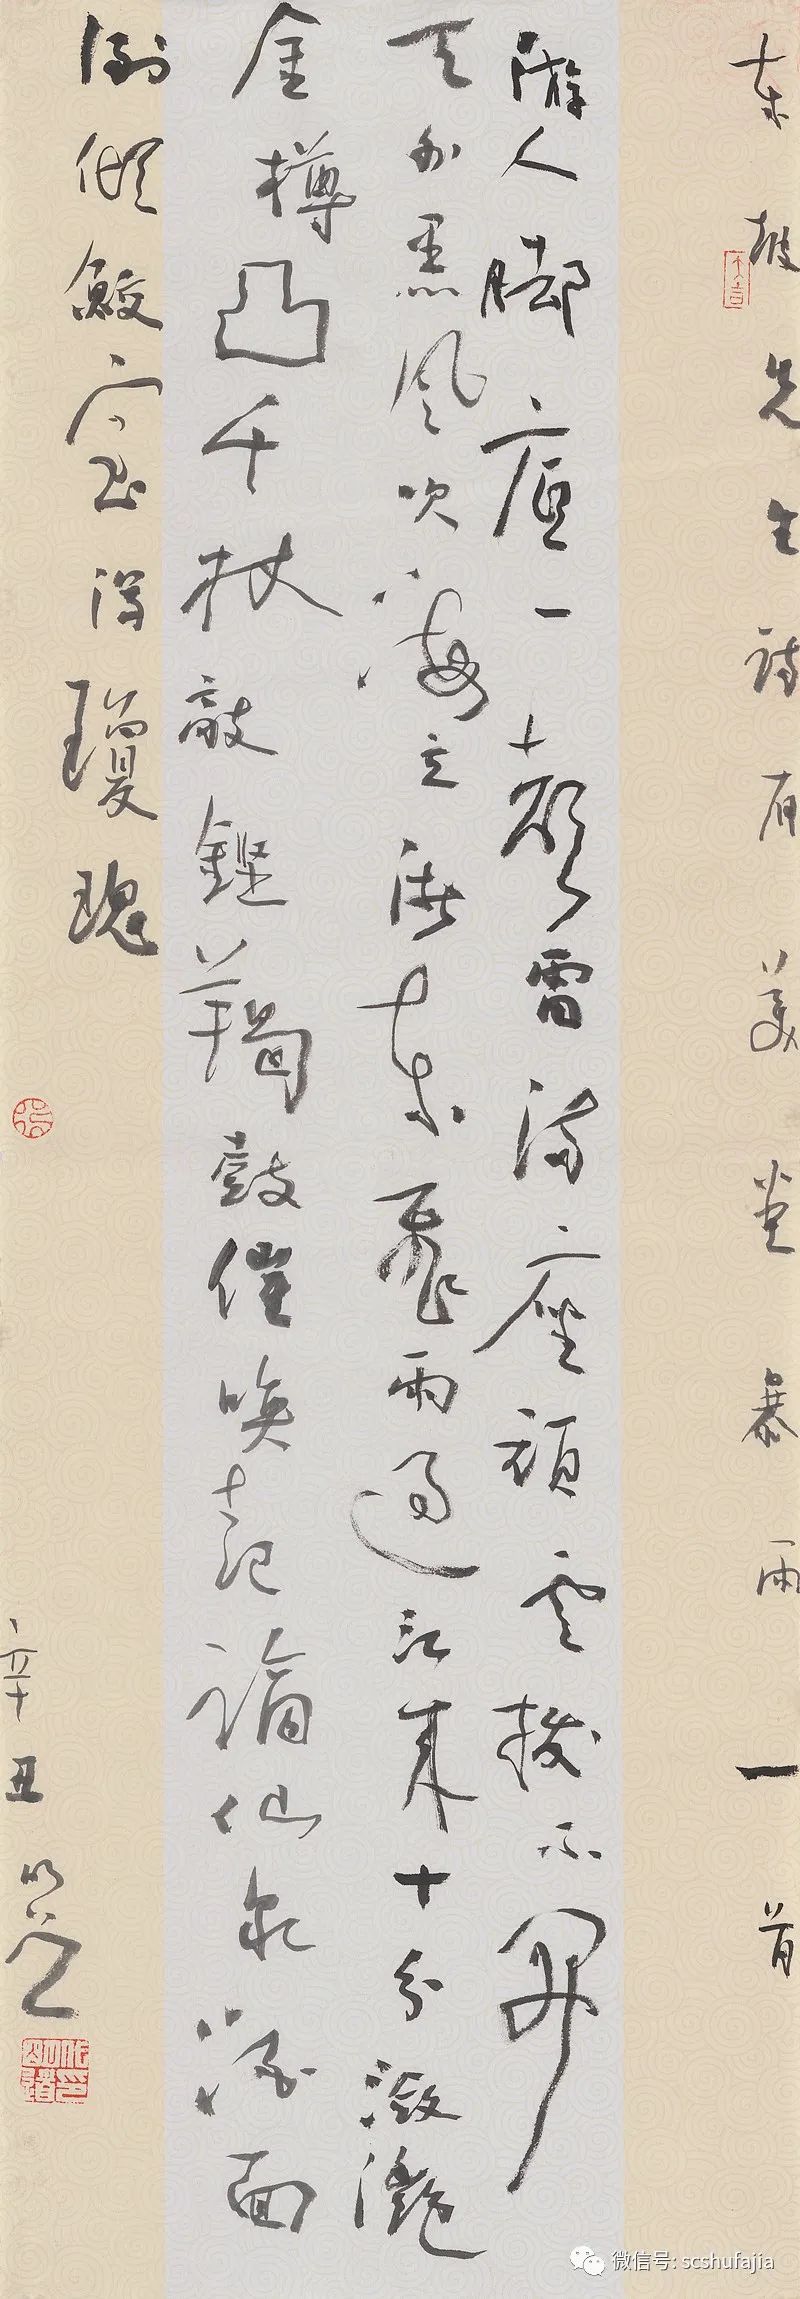 東坡先生詩有美堂暴雨一首
游人脚底一聲雷滿座頑雲撥不開
天外黑風吹海立浙東飛雨過江來十分瀲灩
金樽凸千杖敲鏗羯鼓催喚起謫仙泉灑面
倒傾鮫室瀉瓊瑰
辛丑明道
微信号: scshufajia